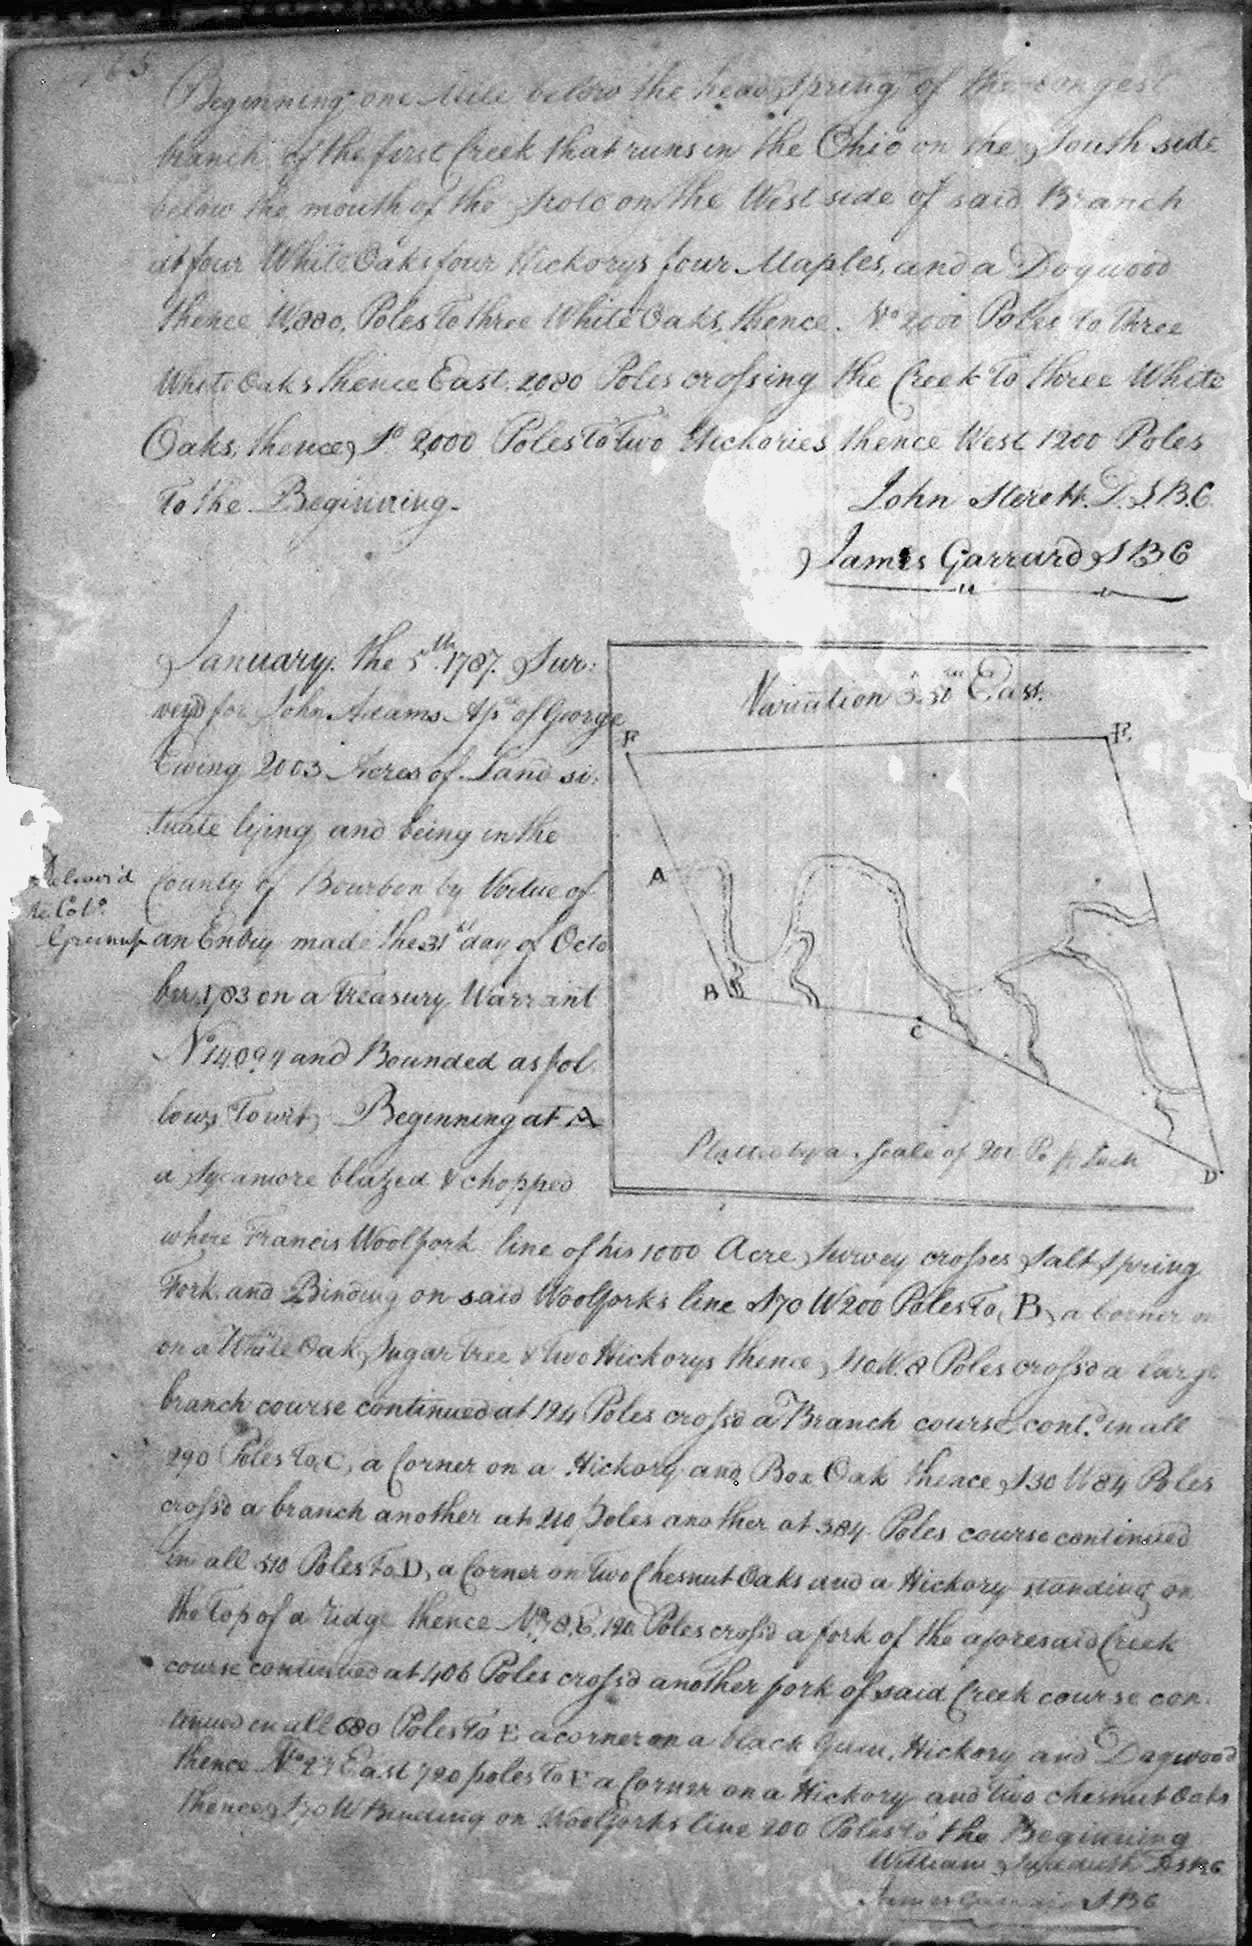 165
Beginning one Mile below the head Spring of the Longest
branch of the first Creek that runs in the Ohio on the South side
below the mouth of the on the West side of said Branch
at four White Oaks four Hickorys four Maples, and a Dogwood
thence W. 880, Poles to three White Oaks, thence. No 2000 Poles to three
White Oaks thence East. 2080 Poles crossing the Creek to three White
Oaks, thence, So 2,000 Poles to Two Hickories thence West 1200 Poles
to the Beginning.
John Sterett. D. S. B. C.
James Garrard S B C
January. the 5th. 1787. Sur:
vey'd for John Adams. of George
Ewing 2003 Acres of Land si:
tuate lying and being in the
County of Bourbon by Vertue of
an Entry made the 31st day of Octo
ber 1783 on a Treasury Warrant
and Bounded as fol
lows, Towit, Beginning at A
a Sycamore blazed & chopped
Deliver'd
Colo.
Greenup
Variation East.
F
E
A
B
C
D
Platted by a Scale of 200 Po pr Inch
where Francis Woolfork line of his 1000 Acre Survey crosses Salt Spring
Fork and Binding on said Woolforks line S 70 W 200 Poles to, B, a Corner
on a White Oak, Sugar tree & two Hickorys thence, S 10 W. 8 Poles cross'd a large
branch course continued at 194 Poles cross'd a Branch course cont.d in all
290 Poles to, C, a Corner on a Hickory and Box Oak thence S 30 W 84 Poles
cross'd a branch another at 210 poles another at 384 Poles course continued
in all 510 Poles to D, a Corner on Two Chesnut Oaks and a Hickory standing on
the Top of a ridge thence 78. E. 190 Poles cross'd a fork of the aforesaid Creek
course continued at 406 Poles cross'd another fork of said Creek course con:
tinued in all 680 Poles to E a corner on a black Gum, Hickory and Dogwood
thence East 720 poles to F a Corner on a Hickory and two chesnut Oaks
thence S 70 W Binding on Woolforks line 200 Poles to the Beginning
William D S B C
James Garrard S B C